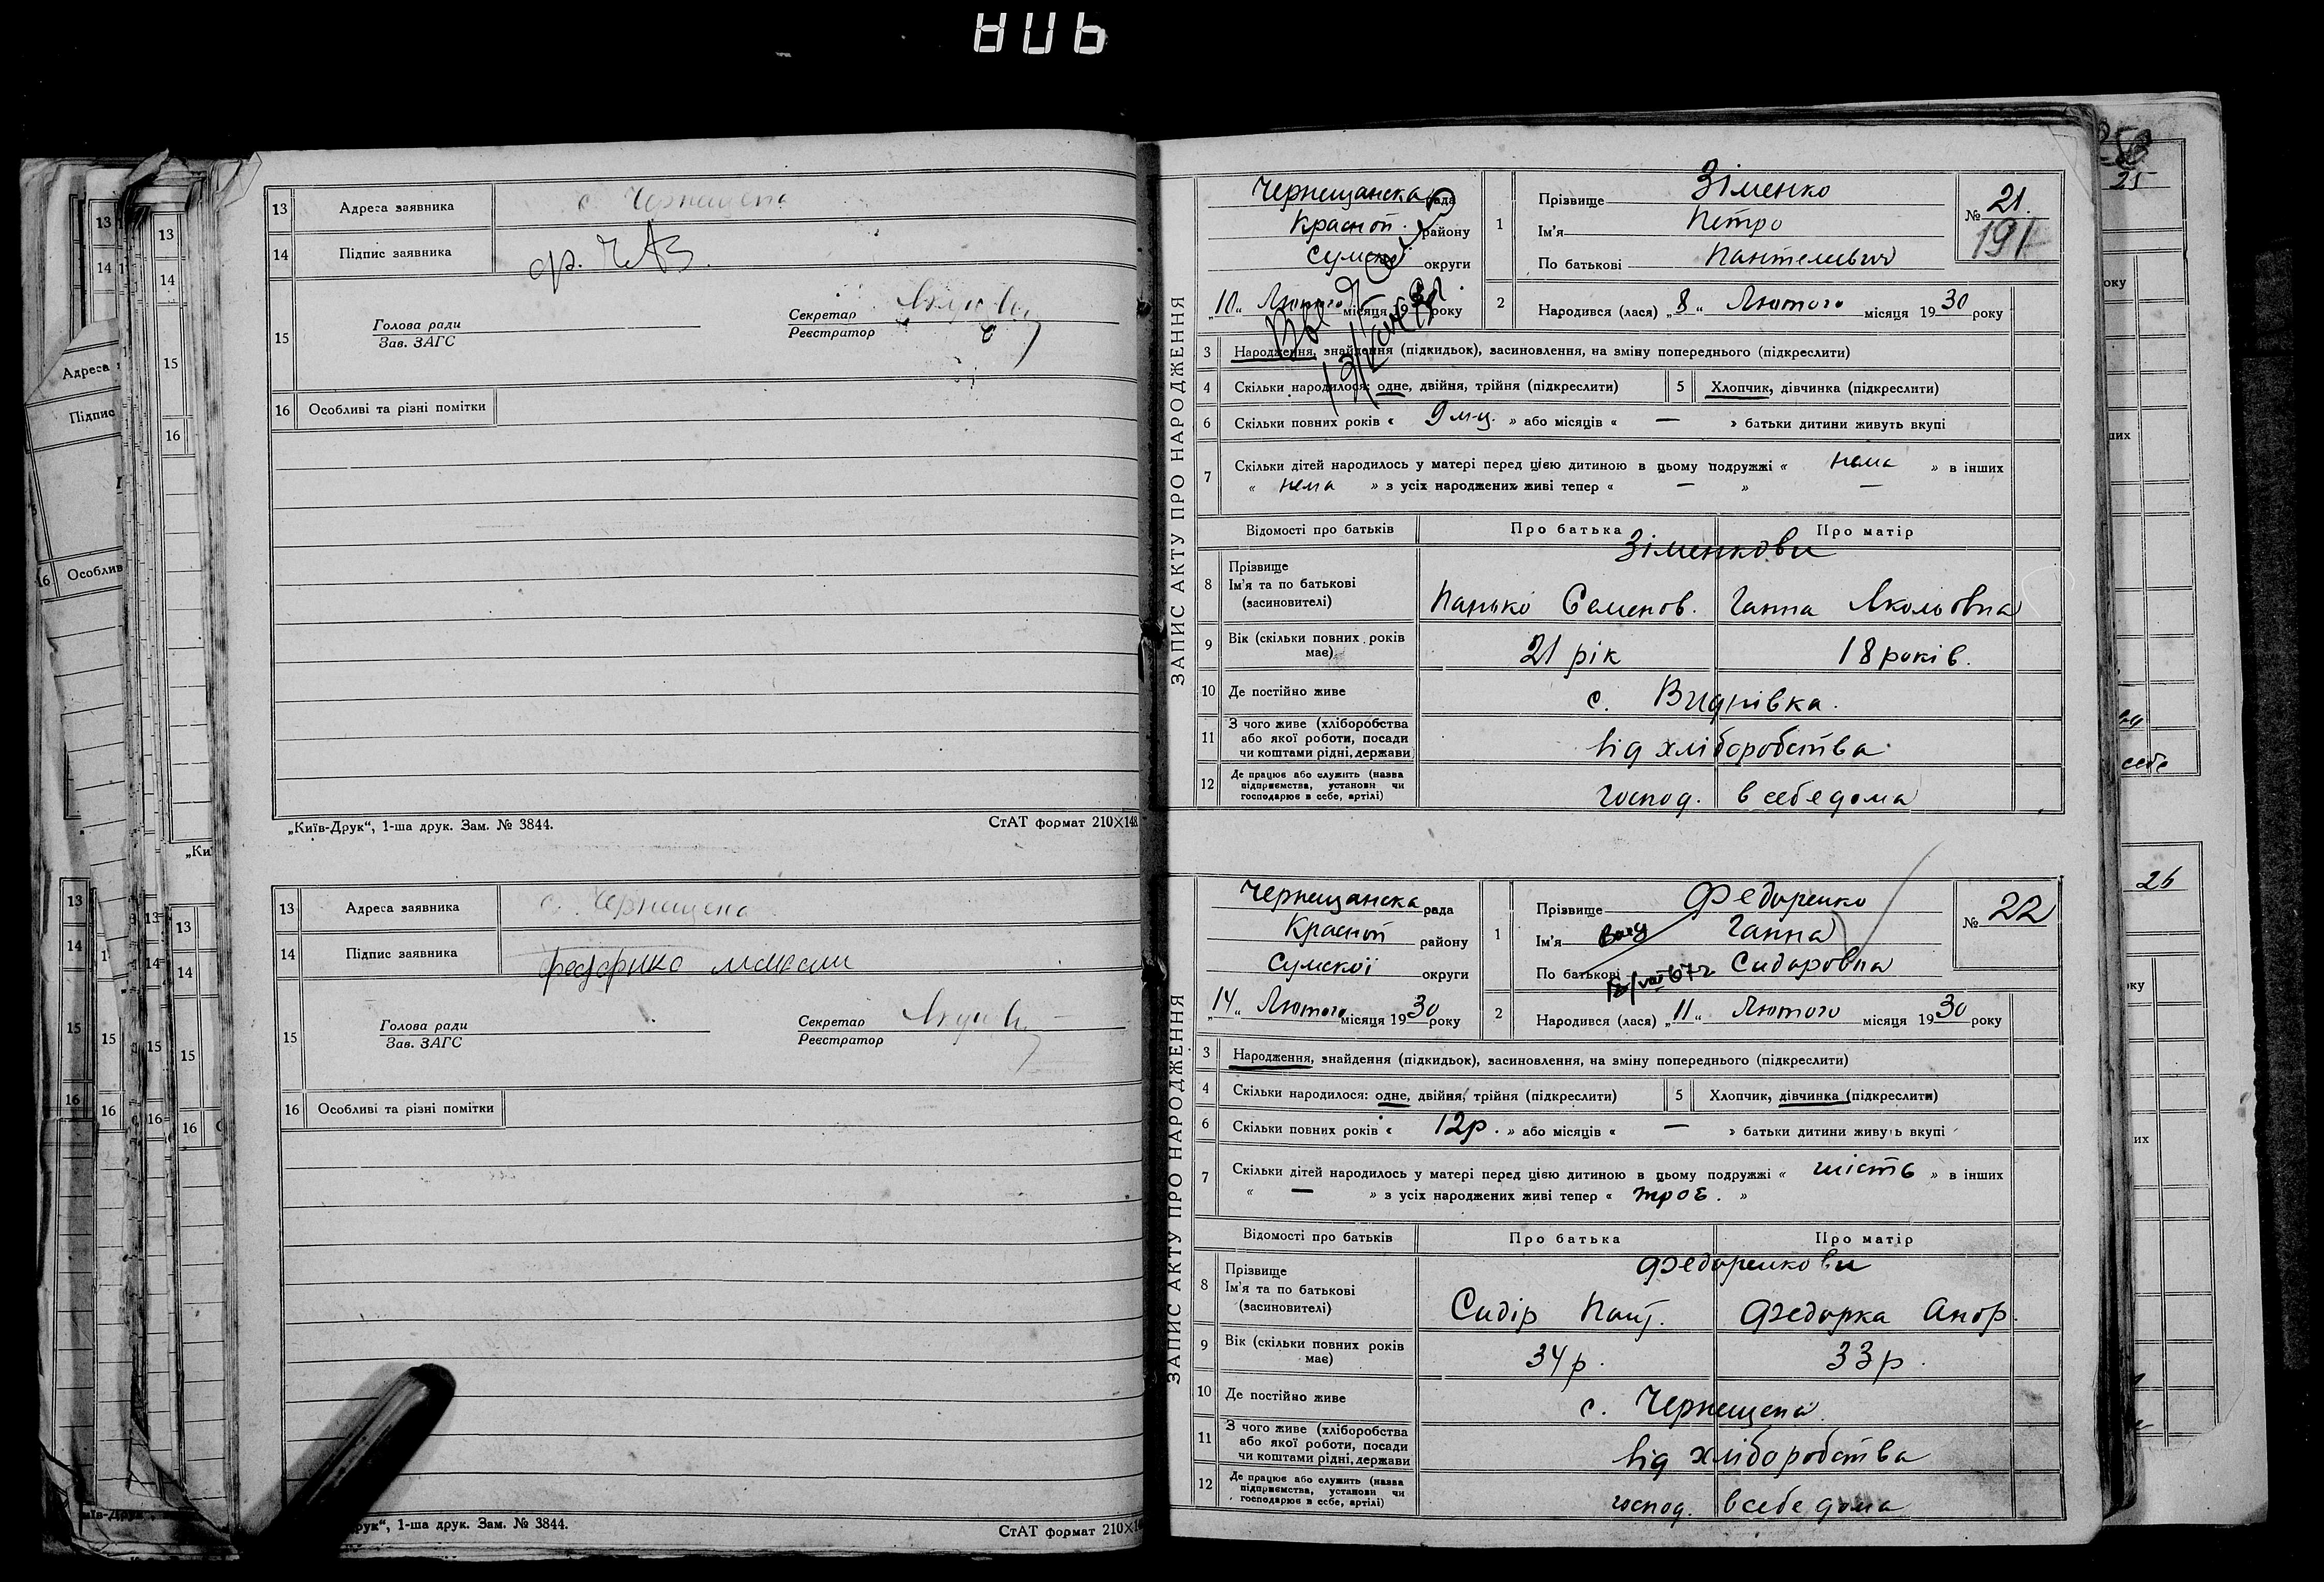 13 Адреса заявника с. Чернещена
14 Підпис заявника
15 Голова ради
Зав. ЗАГС
Секретар
Реєстратор
16 Особливі та різні помітки
„Київ-Друк“, 1-ша друк. Зам. № 3844. СтАТ формат 210×148
13 Адреса заявника с. Чернещена
14 Підпис заявника
15 Голова ради
Зав. ЗАГС
Секретар
Реєстратор
16 Особливі та різні помітки
рук“, 1-ша друк. Зам. № 3844. СтАТ формат 210×14
ЗАПИС АКТУ ПРО НАРОДЖЕННЯ
Чернещанска рада
Красноп. району
Сумскої округи
„10“ Лютого місяця 1930 року
1 Прізвище Зіменко
Ім'я Петро
По батькові Пантелеевич
№ 21.
191
2 Народився (лася) „8“ Лютого місяця 1930 року
3 Народження, знайдення (підкидьок), засиновлення, на зміну попереднього (підкреслити)
4 Скільки народилося: одне, двійня, трійня (підкреслити) 5 Хлопчик, дівчинка (підкреслити)
6 Скільки повних років « 9 м-ц. » або місяців « — » батьки дитини живуть вкупі
7 Скільки дітей народилось у матері перед цією дитиною в цьому подружжі « нема » в інших
« нема » з усіх народжених живі тепер « — » —
Відомості про батьків Про батька Про матір
Зіменкови
8 Прізвище
Ім'я та по батькові
(засиновителі)
Панько Семенов. Ганна Яколовна
9 Вік (скільки повних років має) 21 рік 18 років.
10 Де постійно живе с. Виднівка.
11 З чого живе (хліборобства
або якої роботи, посади
чи коштами рідні, держави
від хліборобства
12 Де працює або служить (назва
підприємства, установи чи
господарює в себе, артілі)
господ. в себе дома
ЗАПИС АКТУ ПРО НАРОДЖЕННЯ
Чернещанска рада
Красноп району
Сумскої округи
„14“ Лютого місяця 1930 року
1 Прізвище Федоренко
Ім'я Ганна
По батькові Сидоровна
№ 22
2 Народився (лася) „11“ Лютого місяця 1930 року
3 Народження, знайдення (підкидьок), засиновлення, на зміну попереднього (підкреслити)
4 Скільки народилося: одне, двійня, трійня (підкреслити) 5 Хлопчик, дівчинка (підкреслити)
6 Скільки повних років « 12 р. » або місяців « — » батьки дитини живуть вкупі
7 Скільки дітей народилось у матері перед цією дитиною в цьому подружжі « шість » в інших
« — » з усіх народжених живі тепер « троє. »
Відомості про батьків Про батька Про матір
Федоренкови
8 Прізвище
Ім'я та по батькові
(засиновителі)
Сидір Федорка
9 Вік (скільки повних років має) 34 р. 33 р.
10 Де постійно живе с. Чернещена
11 З чого живе (хліборобства
або якої роботи, посади
чи коштами рідні, держави
від хліборобства
12 Де працює або служить (назва
підприємства, установи чи
господарює в себе, артілі)
господ. в себе дома